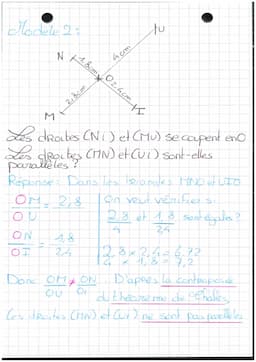 Modèle 2 :
U
N
1,8cm
4cm
O
2,8cm
2,4cm
M
I
Les droites (Ni) et (MU) se coupent en O
Les droites (MN) et (Ui) sont-elles
parallèles ?
Réponse : Dans les triangles MNO et UIO
OM = 2,8
OU
On veut vérifier si
2,8 et 1,8 sont égales ?
4 2,4
ON = 1,8
OI 2,4
2,8 x 2,4 = 6,72
4 x 1,8 = 7,2
Donc OM ≠ ON . D'après la contraposée
OU OI
du théorème de Thalès,
les droites (MN) et (Ui) ne sont pas parallèles